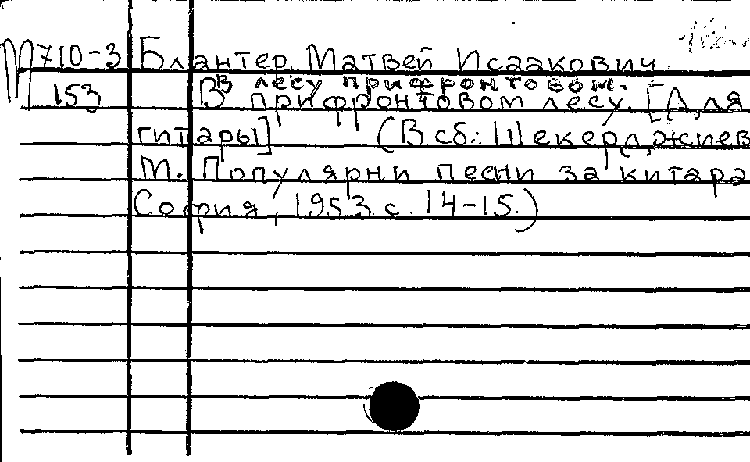 М710-3 Блантер Матвей Исаакович.
В лесу прифронтовом.
153 В прифронтовом лесу. [Для
гитары] (В сб.: Шекерджиев
М. Популярни песни за китара
София, 1953 с. 14-15.)